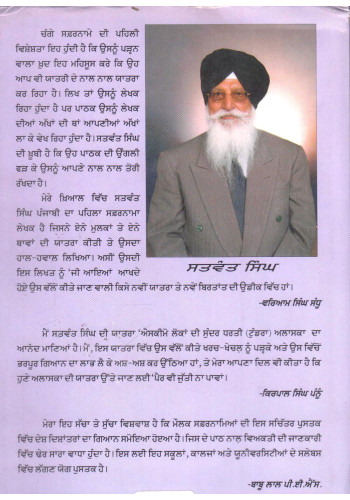 ਚੰਗੇ ਸਫ਼ਰਨਾਮੇ ਦੀ ਪਹਿਲੀ
ਵਿਸ਼ੇਸ਼ਤਾ ਇਹ ਹੁੰਦੀ ਹੈ ਕਿ ਉਸਨੂੰ ਪੜ੍ਹਨ
ਵਾਲਾ ਖ਼ੁਦ ਇਹ ਮਹਿਸੂਸ ਕਰੇ ਕਿ ਉਹ
ਆਪ ਵੀ ਯਾਤਰੀ ਦੇ ਨਾਲ ਨਾਲ ਯਾਤਰਾ
ਕਰ ਰਿਹਾ ਹੈ। ਲਿਖ ਤਾਂ ਉਸਨੂੰ ਲੇਖਕ
ਰਿਹਾ ਹੁੰਦਾ ਹੈ ਪਰ ਪਾਠਕ ਉਸਨੂੰ ਲੇਖਕ
ਦੀਆਂ ਅੱਖਾਂ ਦੀ ਥਾਂ ਆਪਣੀਆਂ ਅੱਖਾਂ
ਲਾ ਕੇ ਵੇਖ ਰਿਹਾ ਹੁੰਦਾ ਹੈ। ਸਤਵੰਤ ਸਿੰਘ
ਦੀ ਖ਼ੂਬੀ ਹੈ ਕਿ ਉਹ ਪਾਠਕ ਦੀ ਉਂਗਲੀ
ਫੜ ਕੇ ਉਸਨੂੰ ਆਪਣੇ ਨਾਲ ਨਾਲ ਤੋਰੀ
ਰੱਖਦਾ ਹੈ।
ਮੇਰੇ ਖ਼ਿਆਲ ਵਿੱਚ ਸਤਵੰਤ
ਸਿੰਘ ਪੰਜਾਬੀ ਦਾ ਪਹਿਲਾ ਸਫ਼ਰਨਾਮਾ
ਲੇਖਕ ਹੈ ਜਿਸਨੇ ਏਨੇ ਮੁਲਕਾਂ ਤੇ ਏਨੇ
ਥਾਵਾਂ ਦੀ ਯਾਤਰਾ ਕੀਤੀ ਤੇ ਉਸਦਾ
ਹਾਲ-ਹਵਾਲ ਲਿਖਿਆ। ਅਸੀਂ ਉਸਦੀ
ਇਸ ਲਿਖਤ ਨੂੰ 'ਜੀ ਆਇਆਂ' ਆਖਦੇ
ਹੋਏ ਉਸ ਵੱਲੋਂ ਕੀਤੇ ਜਾਣ ਵਾਲੀ ਕਿਸੇ ਨਵੀਂ ਯਾਤਰਾ ਤੇ ਨਵੇਂ ਬਿਰਤਾਂਤ ਦੀ ਉਡੀਕ ਵਿੱਚ ਹਾਂ।
-ਵਰਿਆਮ ਸਿੰਘ ਸੰਧੂ
ਸਤਵੰਤ ਸਿੰਘ
ਮੈਂ ਸਤਵੰਤ ਸਿੰਘ ਦੀ ਯਾਤਰਾ 'ਐਸਕੀਮੋ ਲੋਕਾਂ ਦੀ ਸੁੰਦਰ ਧਰਤੀ (ਟੁੰਡਰਾ) ਅਲਾਸਕਾ' ਦਾ
ਆਨੰਦ ਮਾਣਿਆ ਹੈ। ਮੈਂ, ਇਸ ਯਾਤਰਾ ਵਿੱਚ ਉਸ ਵੱਲੋਂ ਕੀਤੇ ਖਰਚ-ਖੇਚਲ ਨੂੰ ਪੜ੍ਹਕੇ ਅਤੇ ਉਸ ਵਿੱਚੋਂ
ਭਰਪੂਰ ਗਿਆਨ ਦਾ ਲਾਭ ਲੈ ਕੇ ਅਸ਼-ਅਸ਼ ਕਰ ਉੱਠਿਆ ਹਾਂ, ਤੇ ਮੇਰਾ ਆਪਣਾ ਦਿਲ ਵੀ ਕੀਤਾ ਹੈ ਕਿ
ਹੁਣੇ ਅਲਾਸਕਾ ਦੀ ਯਾਤਰਾ ਉੱਤੇ ਜਾਣ ਲਈ 'ਪੈਰ ਵੀ ਜੁੱਤੀ ਨਾ ਪਾਵਾਂ'।
-ਕਿਰਪਾਲ ਸਿੰਘ ਪੰਨੂੰ
ਮੇਰਾ ਇਹ ਸੱਚਾ ਤੇ ਸੁੱਚਾ ਵਿਸ਼ਵਾਸ਼ ਹੈ ਕਿ ਮੌਲਕ ਸਫ਼ਰਨਾਮਿਆਂ ਦੀ ਇਸ ਸਚਿੱਤਰ ਪੁਸਤਕ
ਵਿੱਚ ਦੇਸ਼ ਦਿਸ਼ਾਂਤਰਾਂ ਦਾ ਗਿਆਨ ਸਮੋਇਆ ਹੋਇਆ ਹੈ। ਜਿਸ ਦੇ ਪਾਠ ਨਾਲ ਵਿਅਕਤੀ ਦੀ ਜਾਣਕਾਰੀ
ਵਿੱਚ ਢੇਰ ਸਾਰਾ ਵਾਧਾ ਹੁੰਦਾ ਹੈ। ਇਸ ਲਈ ਇਹ ਸਕੂਲਾਂ, ਕਾਲਜਾਂ ਅਤੇ ਯੂਨੀਵਰਸਿਟੀਆਂ ਦੇ ਸਲੇਬਸ
ਵਿੱਚ ਲੱਗਣ ਯੋਗ ਪੁਸਤਕ ਹੈ।
-ਬਾਬੂ ਲਾਲ ਪੀ.ਈ.ਐੱਸ.